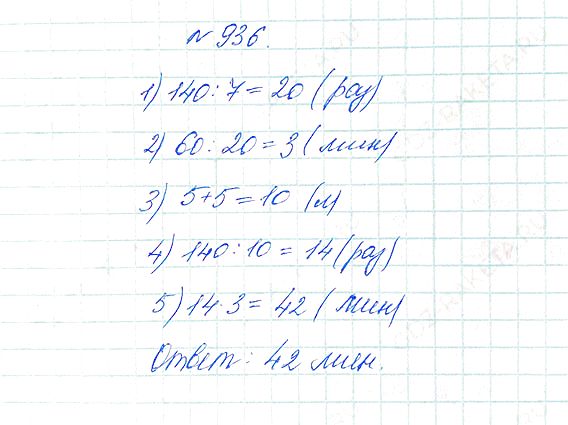 № 936.
1) 140 : 7 = 20 (раз)
2) 60 : 20 = 3 (мин)
3) 5+5 = 10 (м)
4) 140 : 10 = 14 (раз)
5) 14 · 3 = 42 (мин)
Ответ: 42 мин.